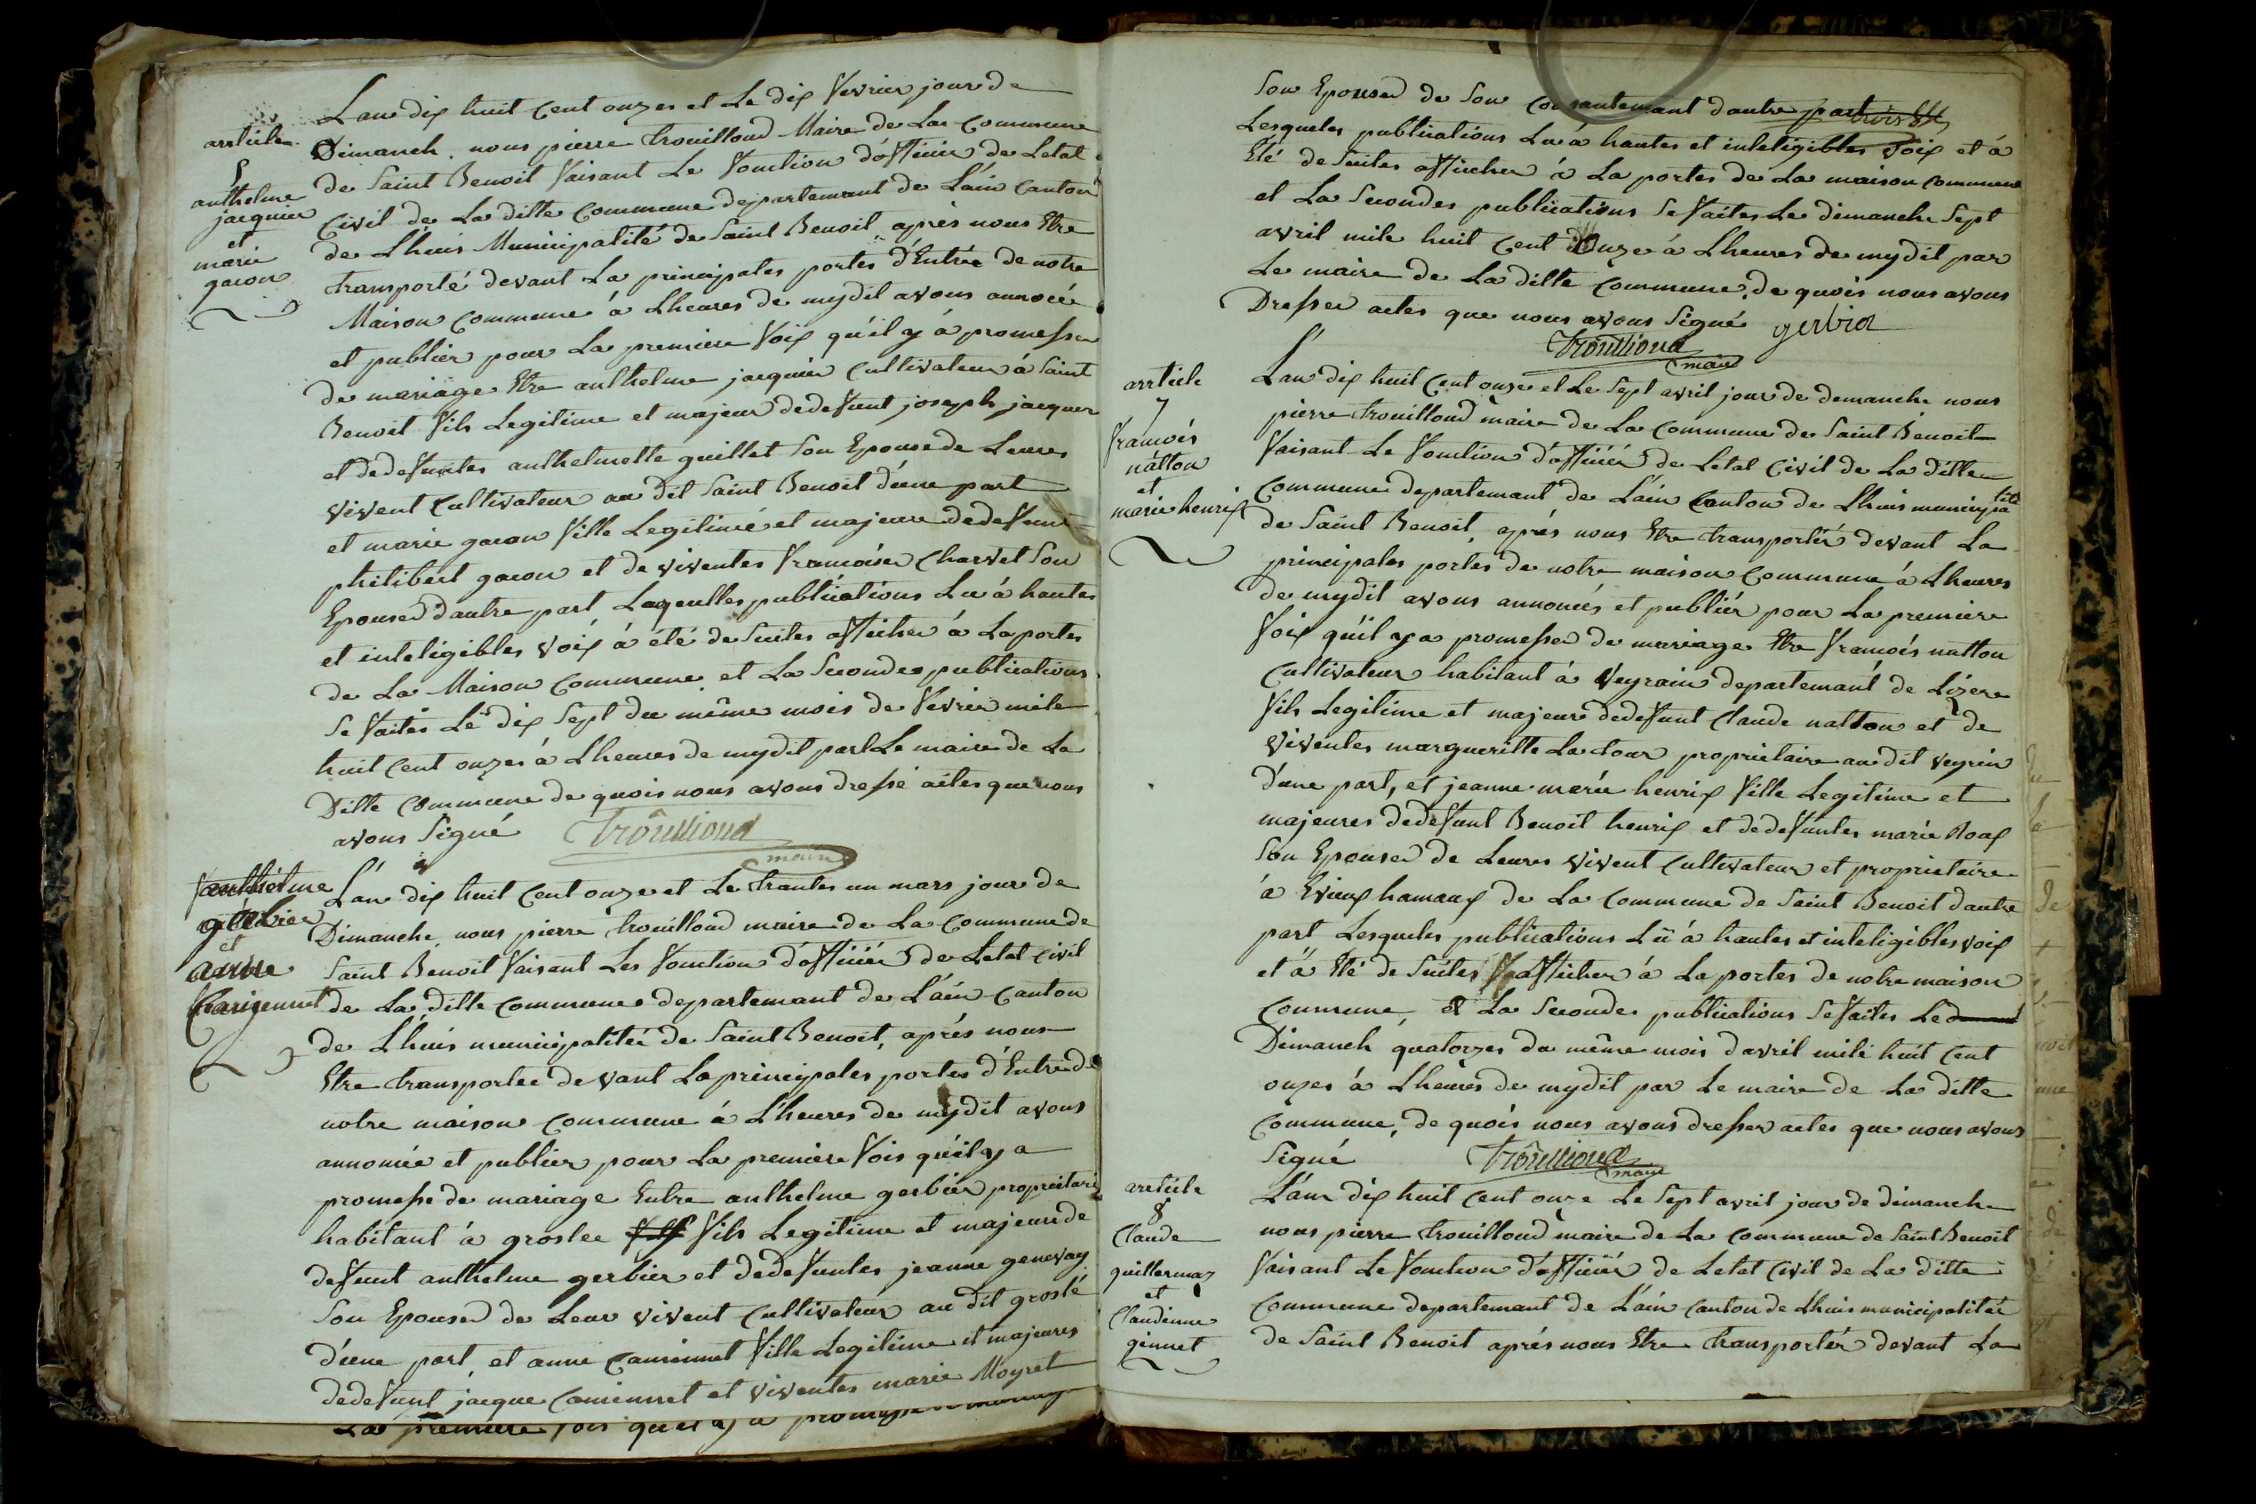 Lan dix huit Cent onzes et Le dix Vevrier jour de
Dimanch. nous pierre trouilloud Maire de La Commune
de Saint Benoit Vaisant Le Vonction d'óffiúir de Letat
Civil de La ditte Commune departemant de Láin Canton
de Lhuis Municipalité de Saint Benoit aprés nous Etre
transporté devant La principales portes d'Entrée de notre
Maison Commune à Lheures de mydit avons annocée
et publier pour La premiere Voix qu'il y á promesse
de mariage Etre anthelme jacquier Cultivateur á Saint
Benoit Vils Legitime et majeur dedeVunt joseph jacquer
et dedeVuntes anthelmette guillet Son Epouse de Leures
vivent Cultivateur au dit Saint Benoit d'une part
et marie gacon Ville Legitimé et majeure dedeVunt
philibert gacon et de viventes Vrancoise Charvet Son
Epouser d'autre part Laqeulles publications Lu á hautes
et inteligibles voix á été de Suites afficher á La portes
de La Maison Commune et La Secondes publications
Se Vaites Le dix Sept du même mois de Vevrier mile
huit Cent onzes à Lheures de mydit part Le maire de La
Ditte Commune de quois nous avons dressé actes que nous
avons Signé Trouilloud
maire
arrticle
5
anthelme
jacquier
et
marie
gacon
L'an dix huit Cent onze et Le trantes un mars jour de
Dimanche nous pierre trouilloud maire de La Commune de
Saint Benoit Vaisant Les Vonction d'officiér de Letat Civil
de La ditte Commune departemant de Láin Canton
de Lhuis municipalitée de Saint Benoit, aprés nous
Etre transportee devant La principales portes d'Entrée de
notre maison Commune á Lheures de mydit avons
annoncée et publier pour La premiere Vois quéil y a
promesse de mariage Entre anthelme gerbier propriétaire
habitant á groslee Vils Legitime et majeure de
deVunt anthelme gerbier et dedeVuntes jeanne genevay
Son Epouser de Leur vivent Cultivateur au dit groslé
d'une part et anne Ville Legitime et majeures
dedeVunt jacque et viventes marie Moyret
La premiere fois quil y a promesse de mariage
anthelme
gerbier
et
anne
Son Epouser de Son Consantemant d'autre part
Lesqueles publications Lu á hautes et inteligibles Voix et á
Eté de Suites afficher á La portes de La maison Commune
et La Secondes publications Se Vaites Le dimanche Sept
avril mile huit Cent Onze á Lheures de mydit par
Le maire de La ditte Commune, de quois nous avons
Dresser actes que nous avons Signé gerbier
Trouilloud
maire
arrticle
7
Vrancois
natton
et
marie henrix
L'an dix huit Cent onze et Le Sept avril jour de demanche nous
pierre trouilloud maire de La Commune de Saint Benoit
Vaisant Le Vonction d'officiér de Letat Civil de La ditte
Commune departemant de Láin Canton de Lhuis municipalité
de Saint Benoit, aprés nous Etre transportér devant La
principales portes de notre maison Commune á Lheures
de mydit avons annoncés et publiér pour La premiere
Voix qu'il y a promesser de mariage Etre Vrancois natton
Cultivateur habitant á Veyrain departemant de Lizere
Vils Legitime et majeure dedeVunt Claude natton et de
viventes margueritte La tour proprietaire au dit veyrin
d'une part, et jeanne marie henrix Ville Legitime et
majeures dedeVunt Benoit henrix et dedeVuntes marie Roax
Son Epouser de Leures vivent Cultivateur et proprietaire
á Evieux hamaux de La Commune de Saint Benoit d'autre
part Lesqueles publications Lu á hautes et inteligibles voix
et á Eté de Suites afficher á La portes de notre maison
Commune, et La Secondes publications Se Vaites Le
Dimanch quatorzes du même mois d'avril mile huit Cent
onzes á Lheures de mydit par Le maire de La ditte
Commune, de quois nous avons dresser actes que nous avons
Signé Trouilloud
maire
arrticle
8
Claude
guillermaz
et
Claudinne
ginnet
L'an dix huit Cent onze Le Sept avril jour de dimanch
nous pierre trouilloud maire de La Commune de Saint Benoit
Vaisant Le Vonction d'officiér de Letat Civil de La ditte
Commune departemant de Láin Canton de Lhuis municipalitée
de Saint Benoit aprés nous Etre transportér devant La